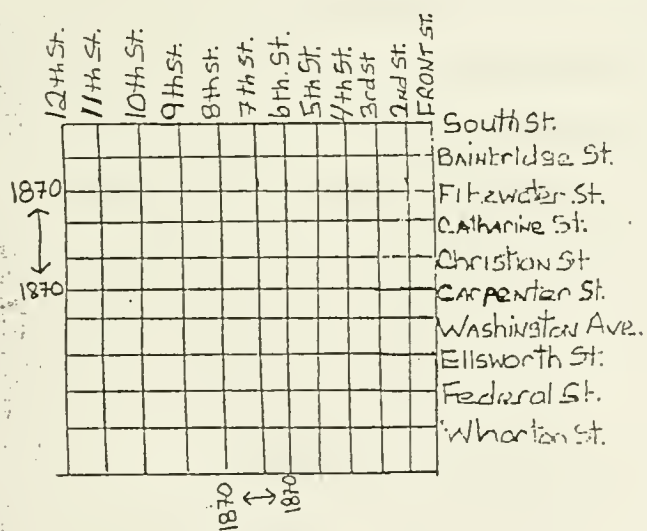 12th St.
11th St.
10th St.
9th St.
8th st.
7th St.
6th. St.
5th St.
4th St.
3rd st
2nd St.
FRONT ST.
South St.
Bainbridge St.
1870
Fitzwater St.
Catharine St.
Christian St
1870
Carpenter St.
Washington Ave.
Ellsworth St.
Federal St.
Wharton St.
1870
1870